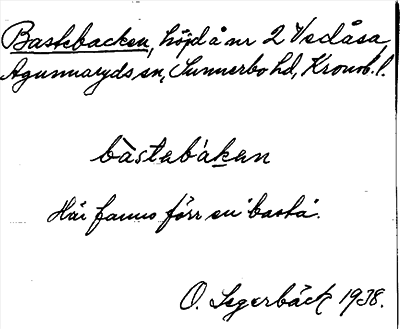 Bastebacken, höjd å nr 2 Vedåsa,
Agunnaryds sn, Sunnerbo hd, Kronob. l.
bàstabákan
Här fanns förr en 'basta'.
O. Segerbäck 1938.